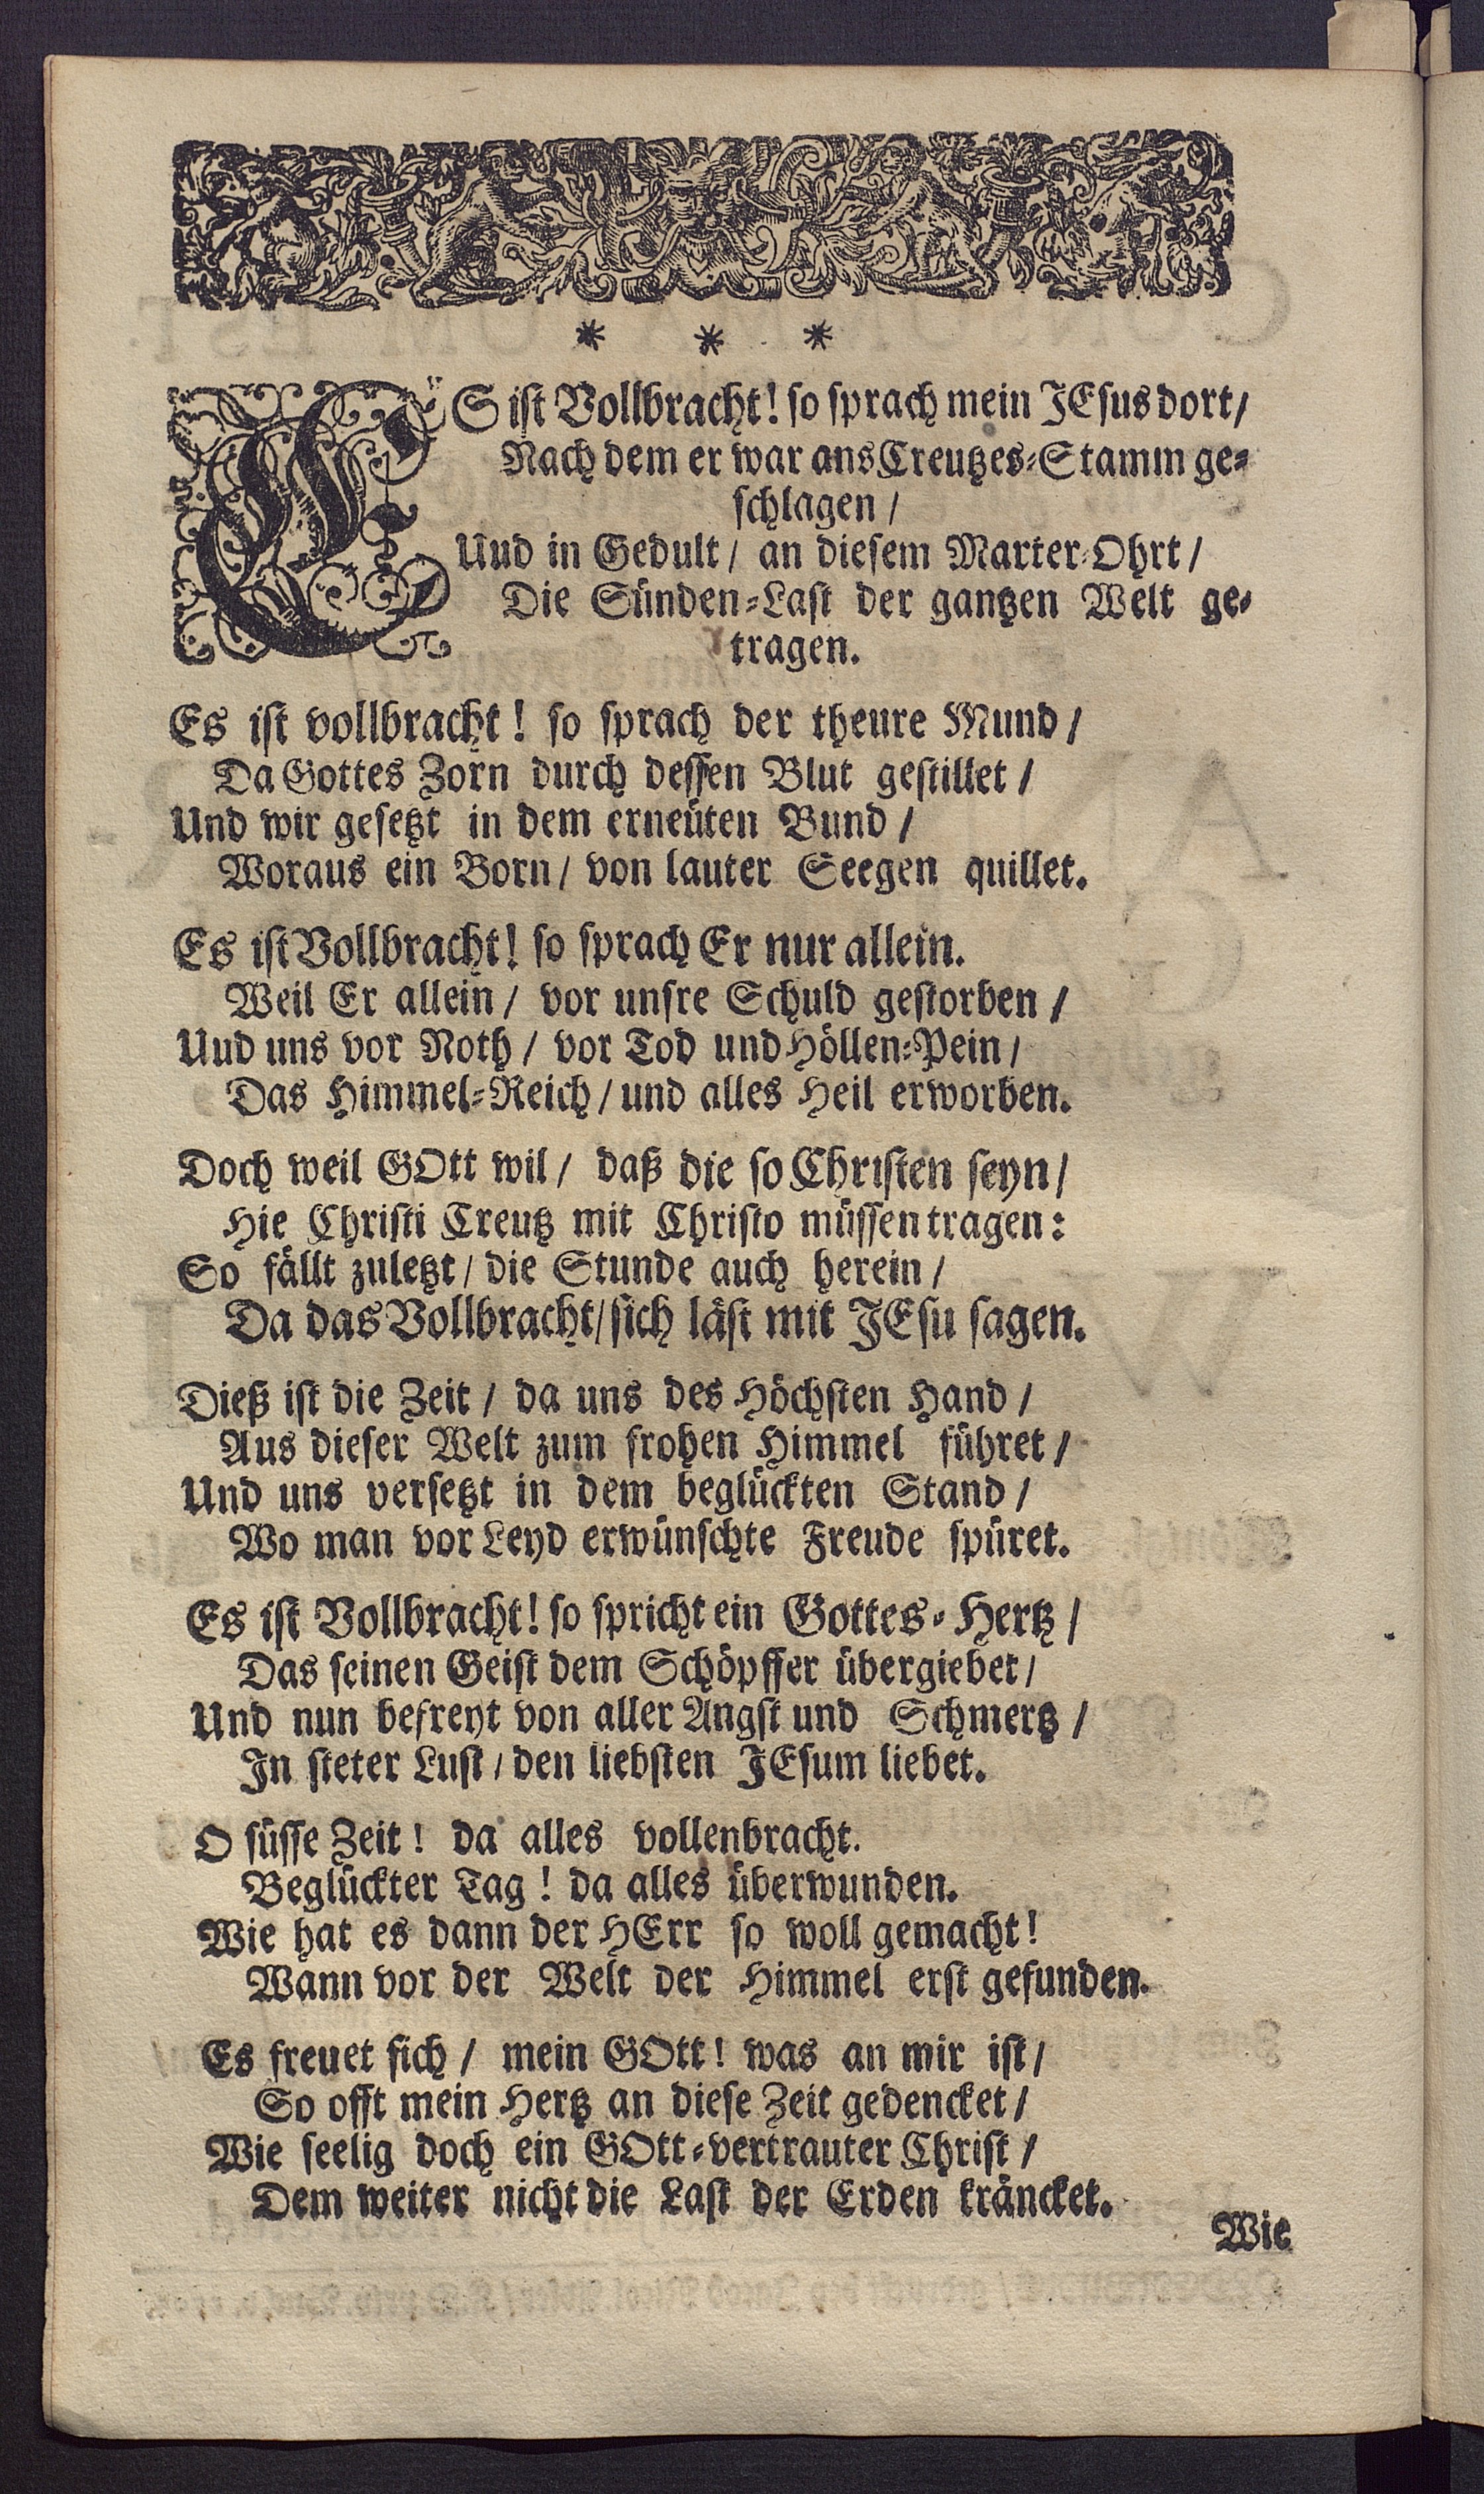 * * *
ES ist Vollbracht! so sprach mein JEsus dort/
Nach dem er war ans Creutzes-Stamm ge-
schlagen /
Uud in Gedult / an diesem Marter-Ohrt /
Die Sünden-Last der gantzen Welt ge-
tragen.
Es ist vollbracht! so sprach der theure Mund /
Da Gottes Zorn durch dessen Blut gestillet /
Und wir gesetzt in dem erneuten Bund /
Woraus ein Born / von lauter Seegen quillet.
Es ist Vollbracht! so sprach Er nur allein.
Weil Er allein / vor unsre Schuld gestorben /
Uud uns vor Noth / vor Tod und Höllen-Pein /
Das Himmel-Reich / und alles Heil erworben.
Doch weil GOtt wil / daß die so Christen seyn /
Hie Christi Creutz mit Christo müssen tragen:
So fällt zuletzt / die Stunde auch herein /
Da das Vollbracht / sich läst mit JEsu sagen.
Dieß ist die Zeit / da uns des Höchsten Hand /
Aus dieser Welt zum frohen Himmel führet /
Und uns versetzt in dem beglückten Stand /
Wo man vor Leyd erwünschte Freude spüret.
Es ist Vollbracht! so spricht ein Gottes-Hertz /
Das seinen Geist dem Schöpffer übergiebet /
Und nun befreyt von aller Angst und Schmertz /
In steter Lust / den liebsten JEsum liebet.
O süsse Zeit! da alles vollenbracht.
Beglückter Tag! da alles überwunden.
Wie hat es dann der HErr so woll gemacht!
Wann vor der Welt der Himmel erst gefunden.
Es freuet sich / mein GOtt! was an mir ist /
So offt mein Hertz an diese Zeit gedencket /
Wie seelig doch ein GOtt-vertrauter Christ /
Dem weiter nicht die Last der Erden kräncket.
Wie